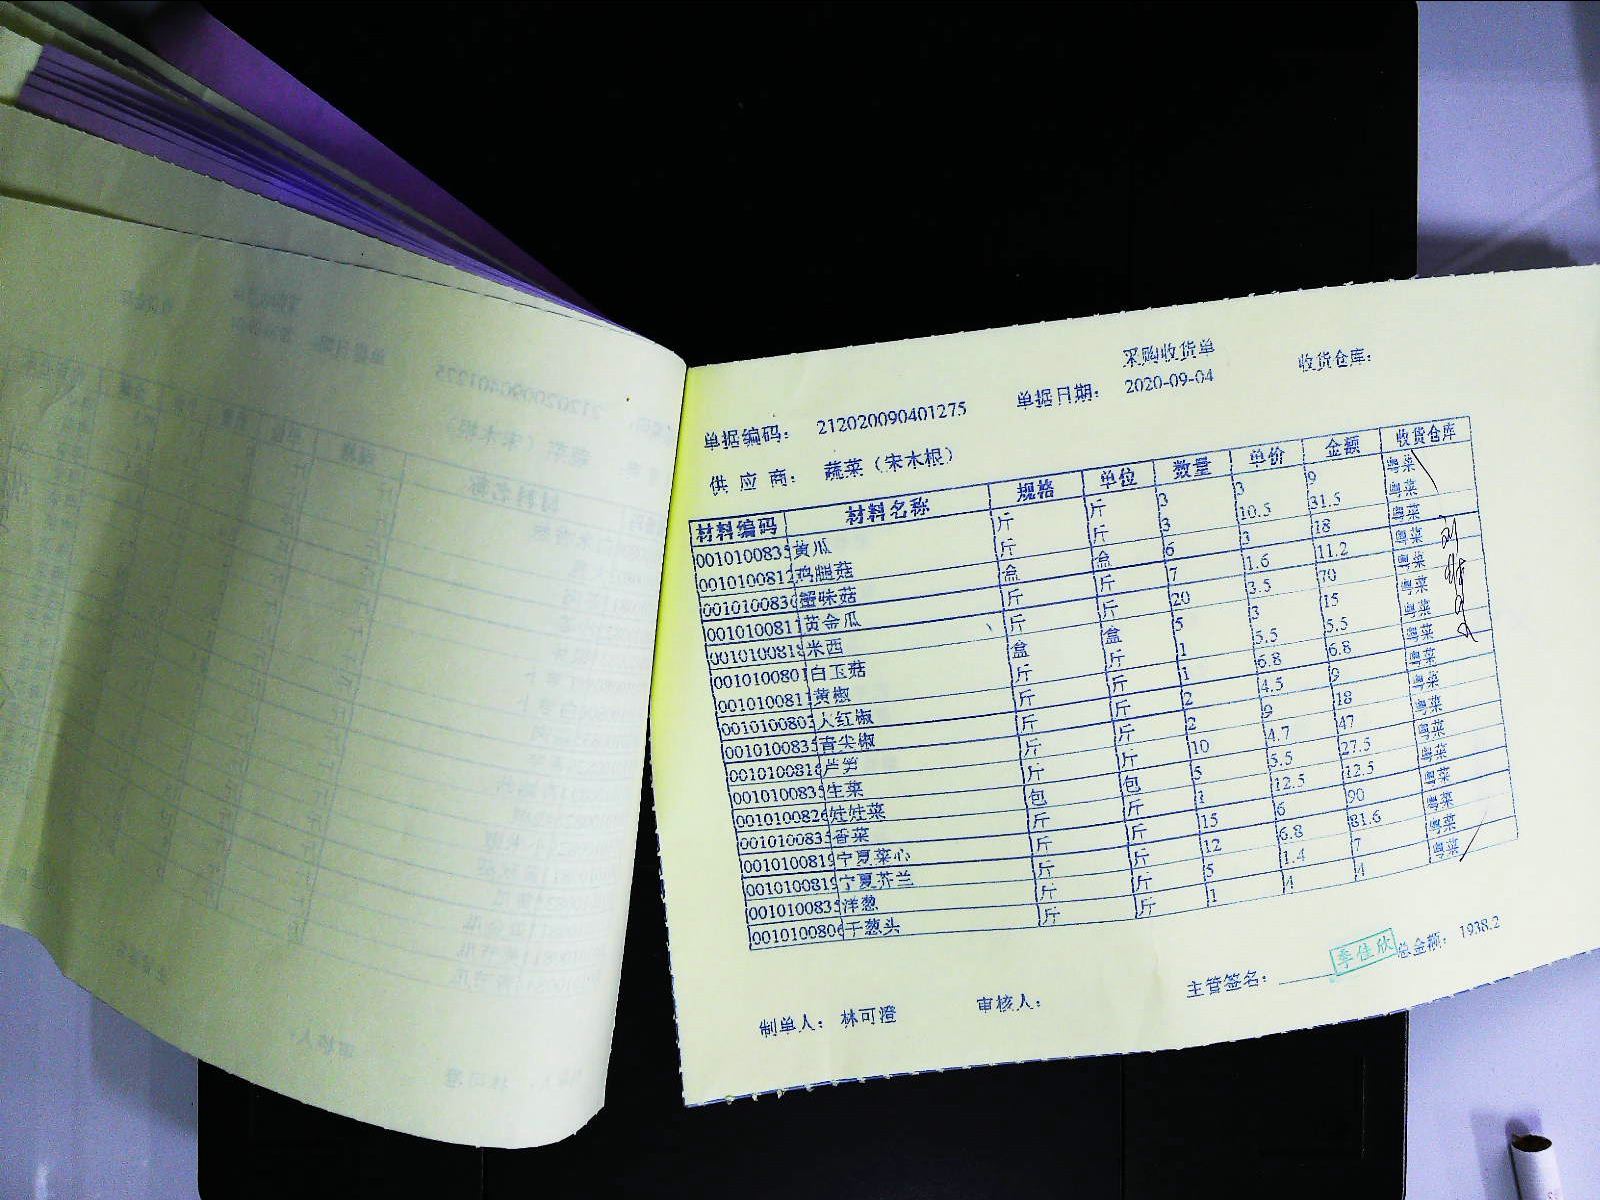 采购收货单
单据编码： 212020090401275 单据日期： 2020-09-04 收货仓库：
供 应 商： 蔬菜（宋木根）
材料编码 材料名称 规格 单位 数量 单价 金额 收货仓库
0010100835 黄瓜 斤 斤 3 3 9 粤菜
0010100812 鸡腿菇 斤 斤 3 10.5 31.5 粤菜
0010100830 蟹味菇 盒 盒 6 3 18 粤菜
0010100811 黄金瓜 斤 斤 7 1.6 11.2 粤菜
0010100818 米西 斤 斤 20 3.5 70 粤菜
0010100801 白玉菇 盒 盒 5 3 15 粤菜
0010100811 黄椒 斤 斤 1 5.5 5.5 粤菜
0010100802 大红椒 斤 斤 1 6.8 6.8 粤菜
0010100835 青尖椒 斤 斤 2 4.5 9 粤菜
0010100816 芦笋 斤 斤 2 9 18 粤菜
0010100835 生菜 斤 斤 10 4.7 47 粤菜
0010100826 娃娃菜 包 包 5 5.5 27.5 粤菜
0010100835 香菜 斤 斤 1 12.5 12.5 粤菜
0010100819 宁夏菜心 斤 斤 15 6 90 粤菜
0010100819 宁夏芥兰 斤 斤 12 6.8 81.6 粤菜
0010100835 洋葱 斤 斤 5 1.4 7 粤菜
0010100806 干葱头 斤 斤 1 4 4 粤菜
制单人： 林可澄 审核人： 主管签名： 季佳欣 总金额： 1938.2